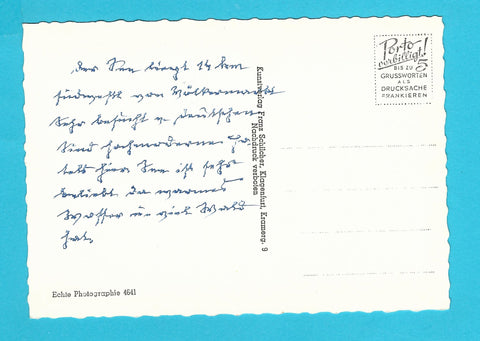 Der See liegt 14 km
südwestl. von Völkermarkt
Sehr besucht v. Deutschen
Sind hochmoderne Ho-
tels hier. See ist sehr
beliebt da warmes
Wasser u. viel Wald
hat.
Echte Photographie 4641
Kunstverlag Franz Schilcher, Klagenfurt, Kramerg. 9
Nachdruck verboten
Porto
verbilligt!
BIS ZU 5
GRUSSWORTEN
ALS
DRUCKSACHE
FRANKIEREN